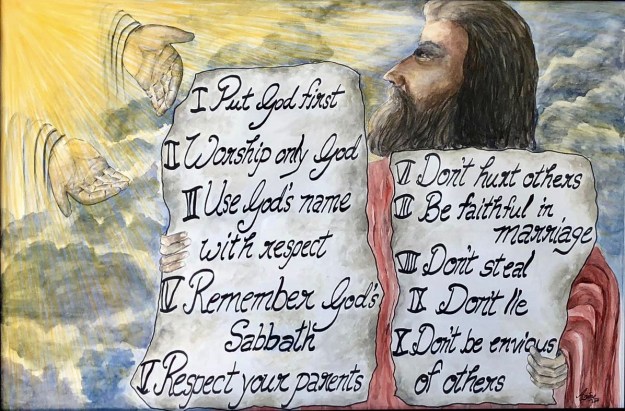 I Put God first
II Worship only God
III Use God's name
with respect
IV Remember God's
Sabbath
V Respect your parents
VI Don't hurt others
VII Be faithful in
marriage
VIII Don't steal
IX Don't lie
X Don't be envious
of others